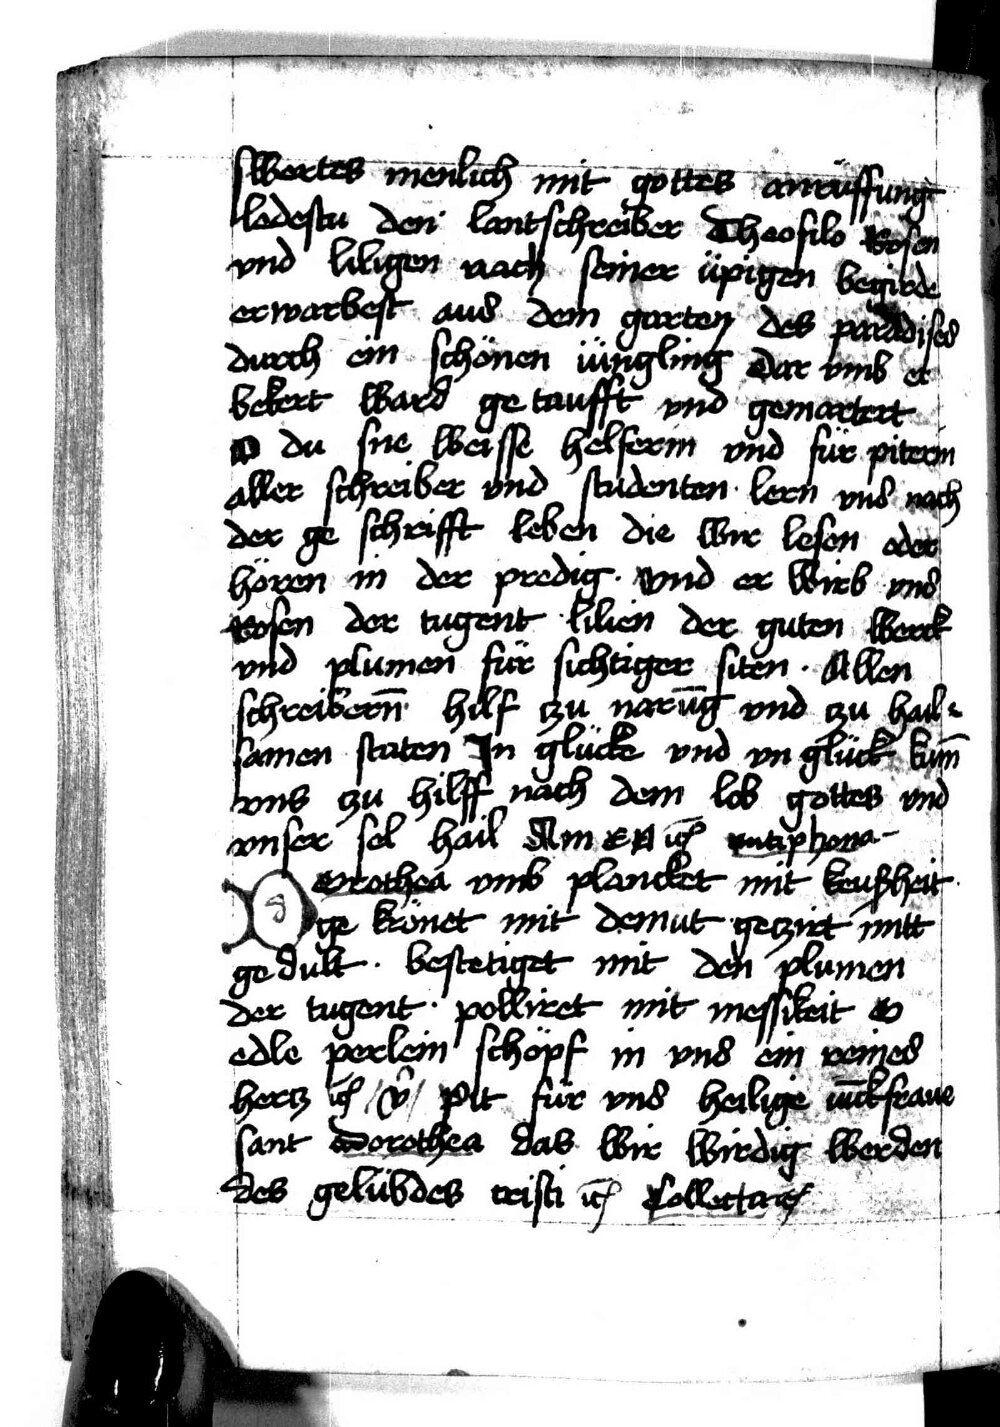 swertes menlich mit gottes anrüffung
ledestu den lantschreiber Theofilo Rosen
vnd liligen nach seiner üpigen begirde
erwarbest aus dem garten des paradises
durch ein schönen iüngling dar vmb er
bekert ward getaufft vnd gemartert
O du sne weisse helferin vnd für piterin
aller schreiber vnd studenten · lern vns nach
der ge schrifft leben die wir lesen oder
hören in der predig · vnd er wirb vns
Rosen der tugent · lilien der guten werck
vnd plumen für sichtiger siten · Allen
schreibern̄ hilf czu narūg vnd czu hail⸗
samen staten In glücke vnd vn glück kum̄
vns czu hilff nach dem lob gottes vnd
vnser sel hail Am EN ic̄ antiphona
Dorothea vmb plancket mit keuscheit
ge krönet mit demut · geczirt mitt
gedult · bestetiget mit den plumen
der tugent · polliret mit messikeit O
edle perlein schöpf in vns ein reines
hertz ic̄ / v̂ / Pit für vns heilige iūckfraue
sant Dorothea das wir wirdig werden
des gelübdes cristi ic̄ Collecta ic̄